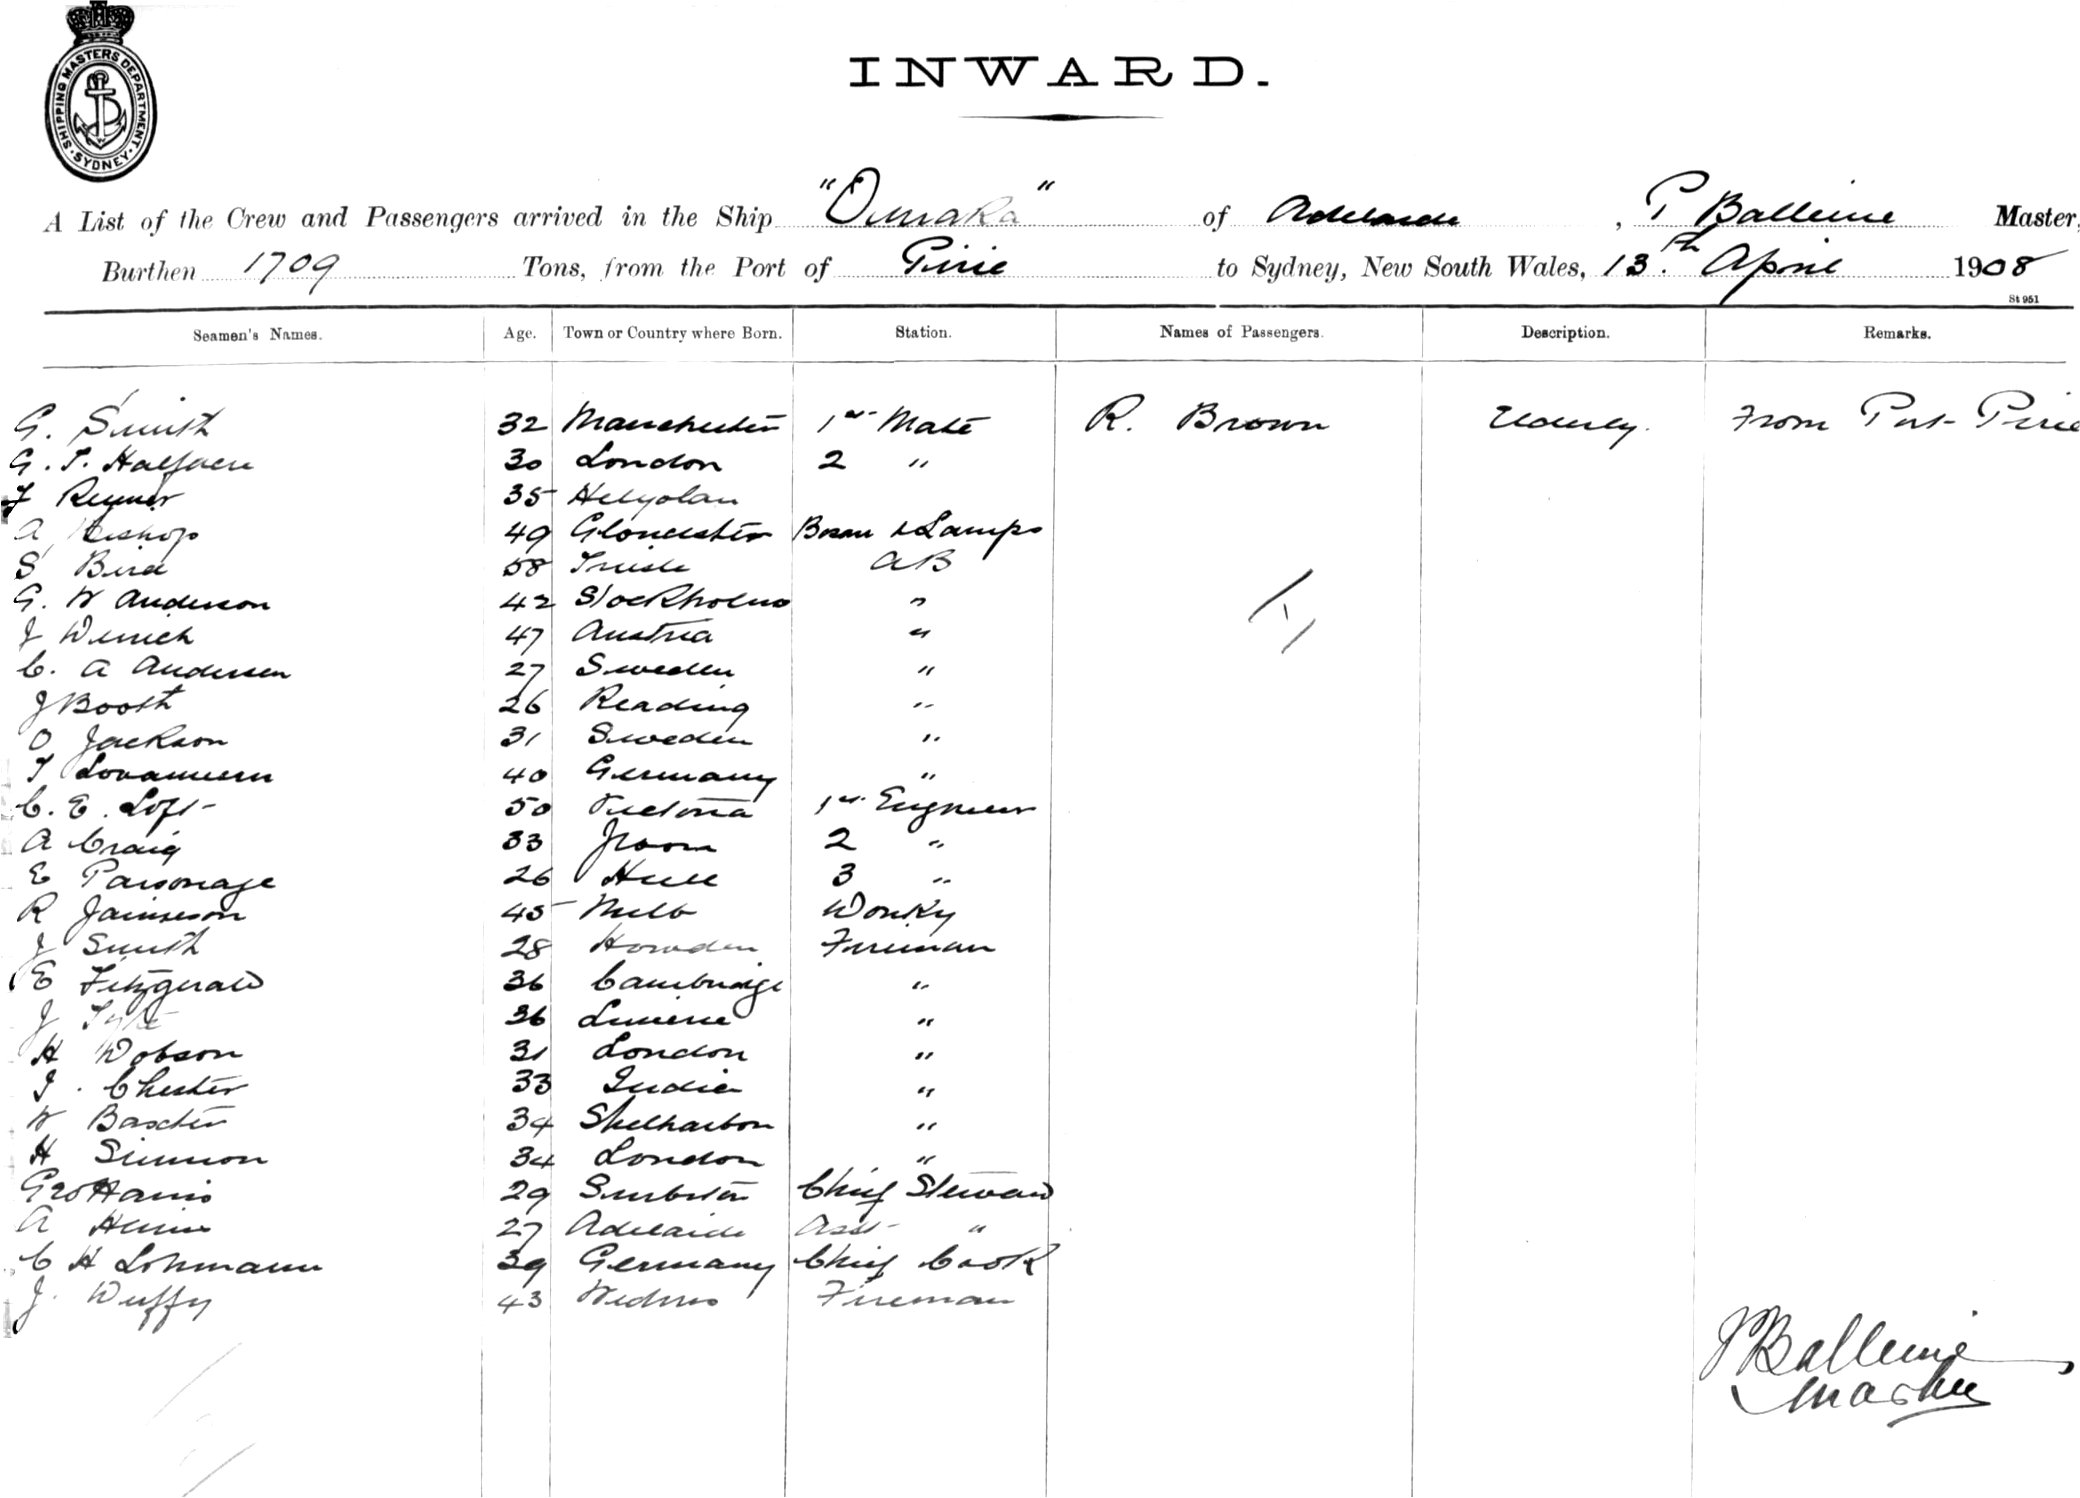 SHIPPING MASTERS DEPARTMENT · SYDNEY ·
INWARD.
A List of the Crew and Passengers arrived in the Ship of Adelaide , P Balleine Master,
Burthen 1709 Tons, from the Port of Pirie to Sydney, New South Wales, 13.th April 1908
St 951
Seamen's Names. Age. Town or Country where Born. Station. Names of Passengers. Description. Remarks.
G. Smith 32 Manchester 1st Mate R. Brown From Port Pirie
G. T. 30 London 2 "
35
A Bishop 49 Gloucester Bosun & Lamps
S Bird 58 AB
G. W Anderson 42 Stockholm "
J 47 Austria "
C. A Andersen 27 Sweden "
J Booth 26 Reading "
O Jackson 31 Sweden "
40 Germany "
C. E. Loft 50 Victoria 1st Engineer
A Craig 33 2 "
E Parsonage 26 Hull 3 "
R Jamieson 45 Melb Donky
J Smith 28 Howden Fireman
E Fitzgerald 36 Cambridge "
J 36 "
H Dobson 31 London "
Chester 33 India "
W Baxter 34 "
H 34 London "
Geo Harris 29 Chief Steward
A 27 Adelaide Asst "
C H Lohmann 39 Germany Chief Cook
J. Duffy 43 Fireman
P Balleine
Master